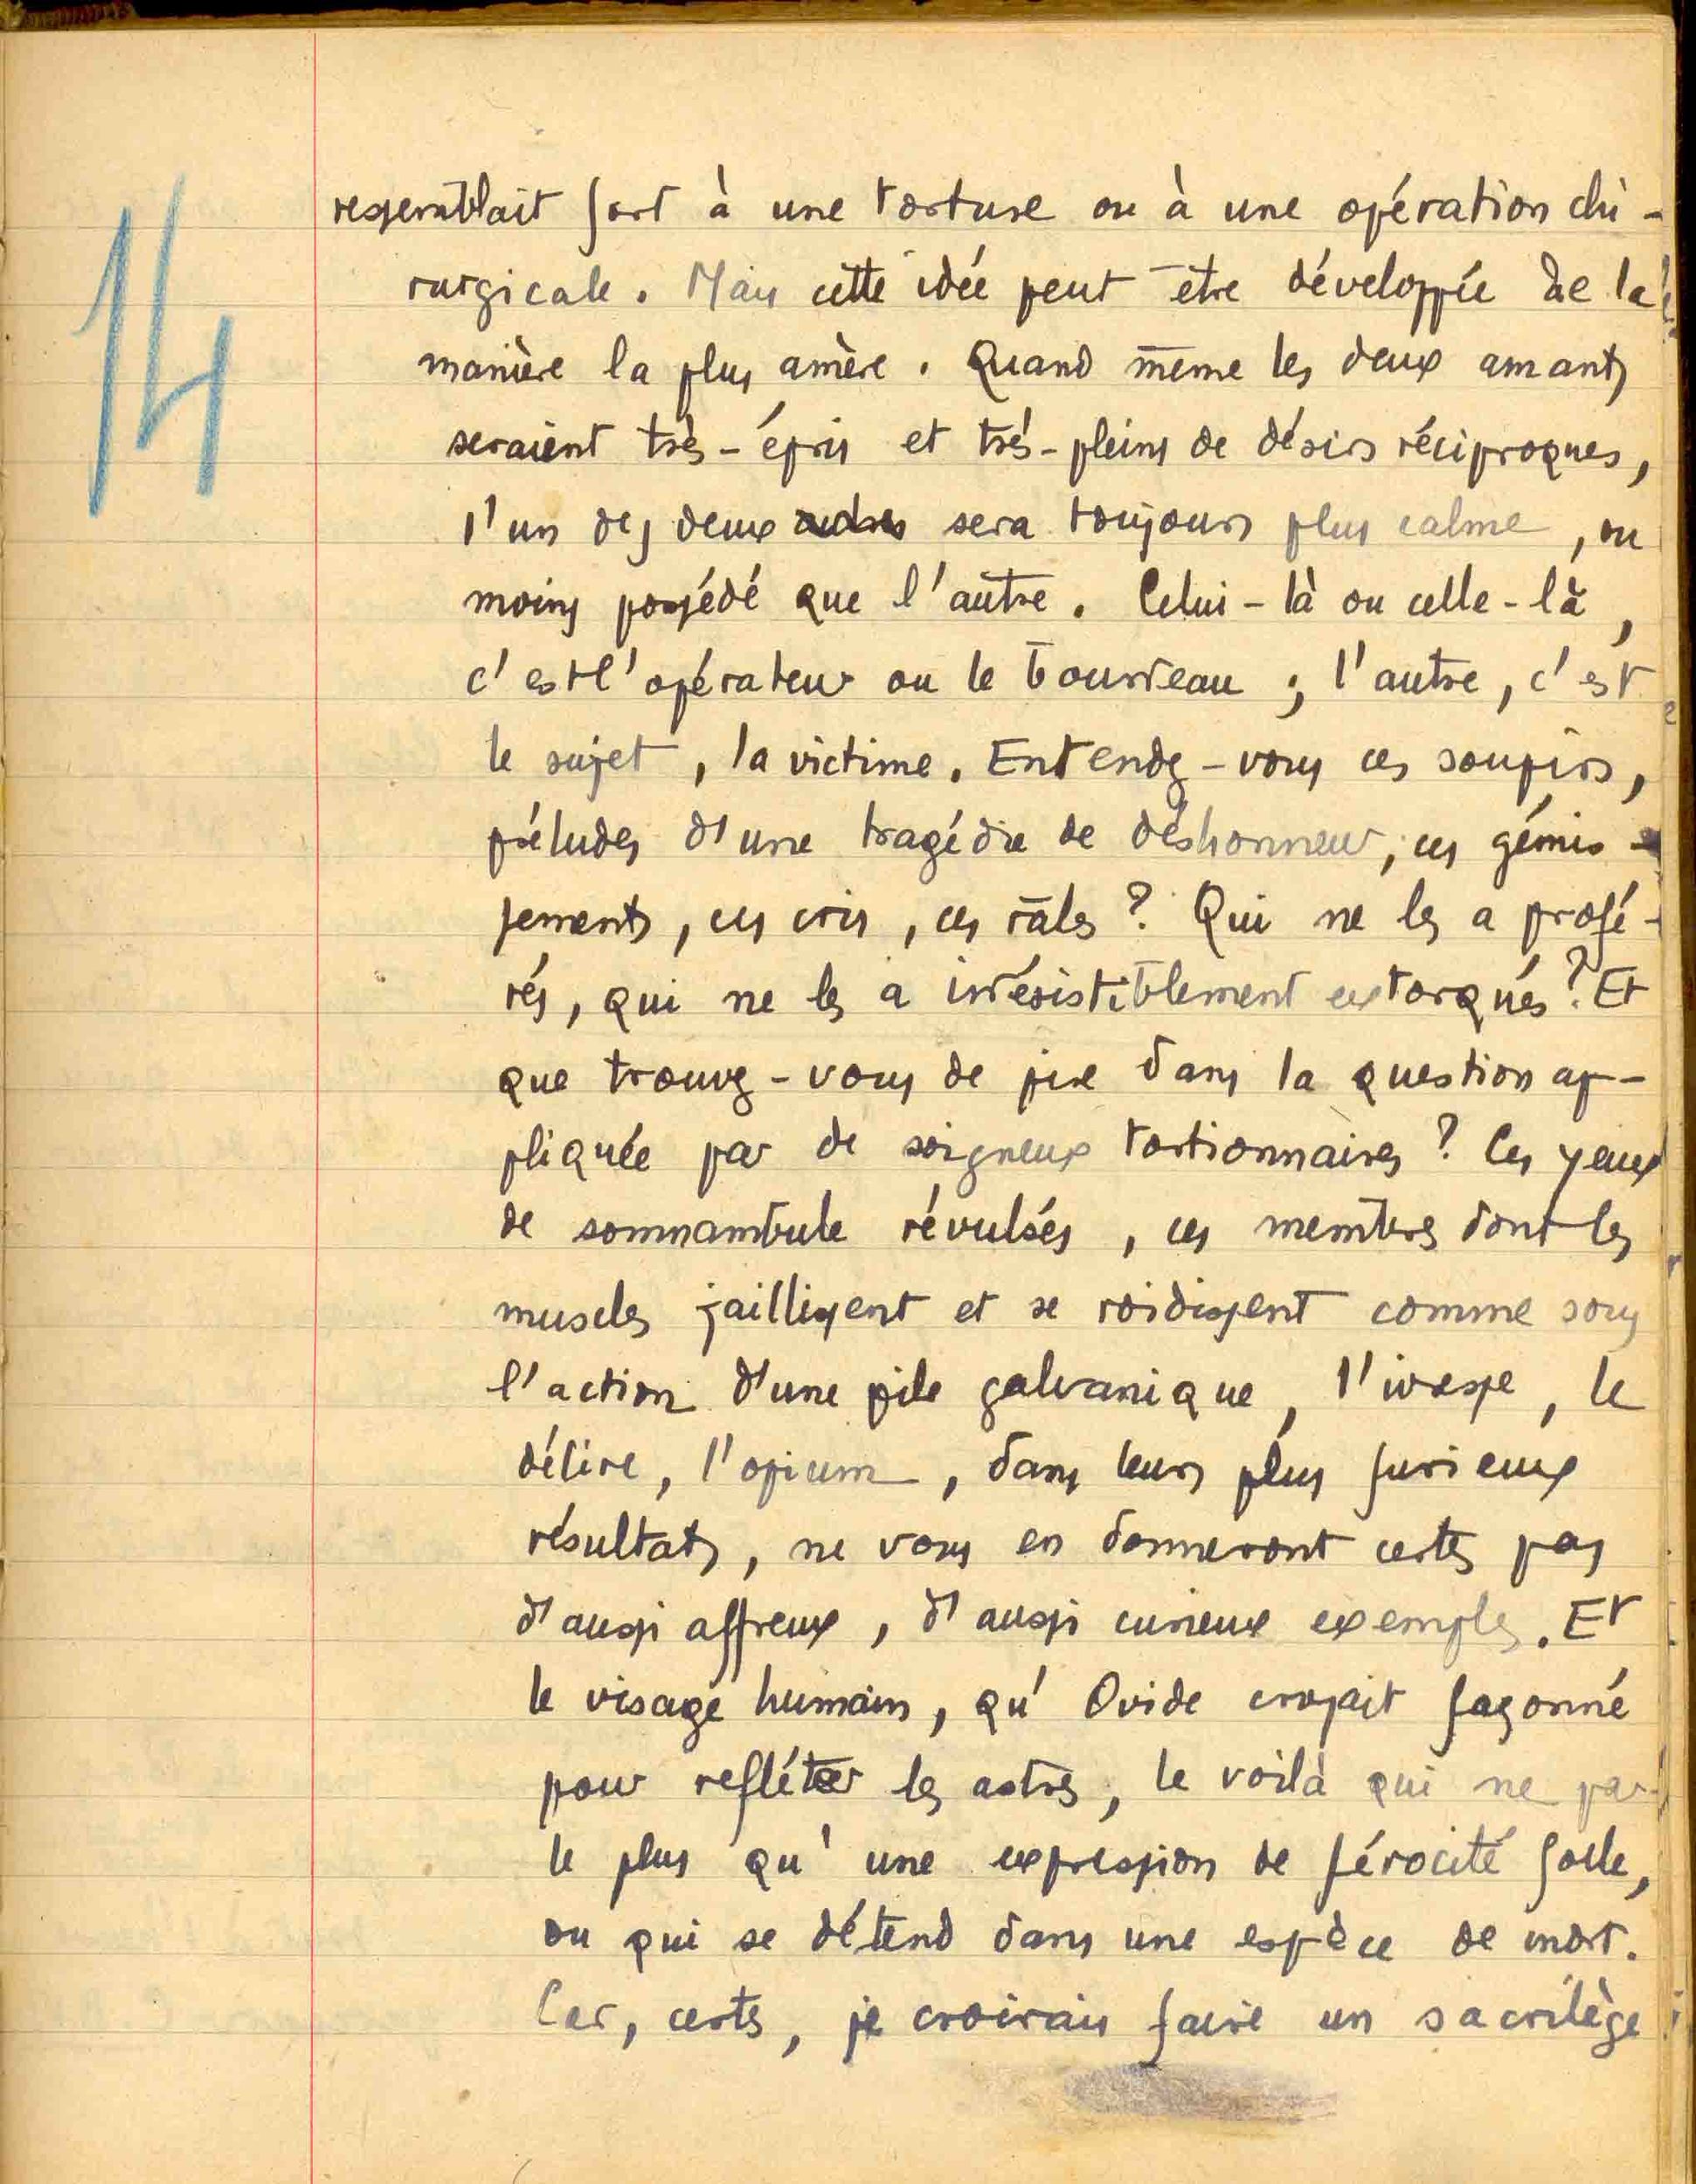 14
ressemblait fort à une torture ou à une opération chi-
rurgicale. Mais cette idée peut être développée de la
manière la plus amère. Quand même les deux amants
seraient très-épris et très-pleins de désirs réciproques,
l'un des deux sera toujours plus calme, ou
moins possédé que l'autre. Celui-là ou celle-là,
c'est l'opérateur ou le bourreau ; l'autre, c'est
le sujet, la victime. Entendez-vous ces soupirs,
préludes d'une tragédie de déshonneur, ces gémis-
sements, ces cris, ces râles ? Qui ne les a profé-
rés, qui ne les a irrésistiblement extorqués ? Et
que trouvez-vous de pire dans la question ap-
pliquée par de soigneux tortionnaires ? Ces yeux
de somnambule révulsés, ces membres dont les
muscles jaillissent et se roidissent comme sous
l'action d'une pile galvanique, l'ivresse, le
délire, l'opium, dans leurs plus furieux
résultats, ne vous en donneront certes pas
d'aussi affreux, d'aussi curieux exemples. Et
le visage humain, qu'Ovide croyait façonné
pour refléter les astres, le voilà qui ne par-
le plus qu'une expression de férocité folle,
ou qui se détend dans une espèce de mort.
Car, certes, je croirais faire un sacrilège